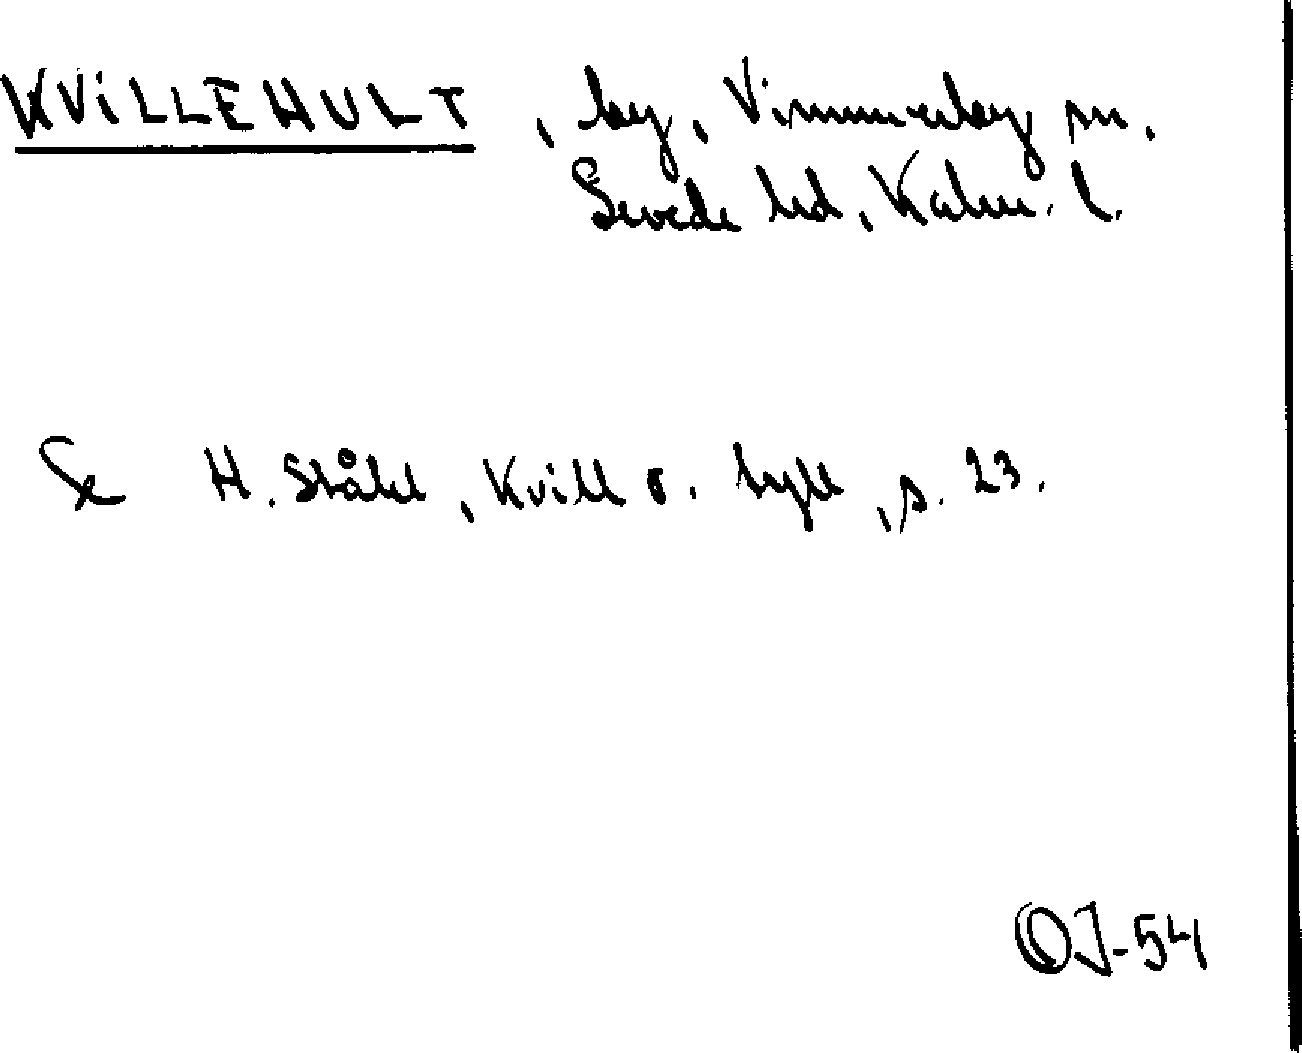 KVILLEHULT, by, Vimmerby sn.
Sevede hd, Kalm. l.
Se H. Ståhl, Kvill o. tyll, s. 23.
OJ-54